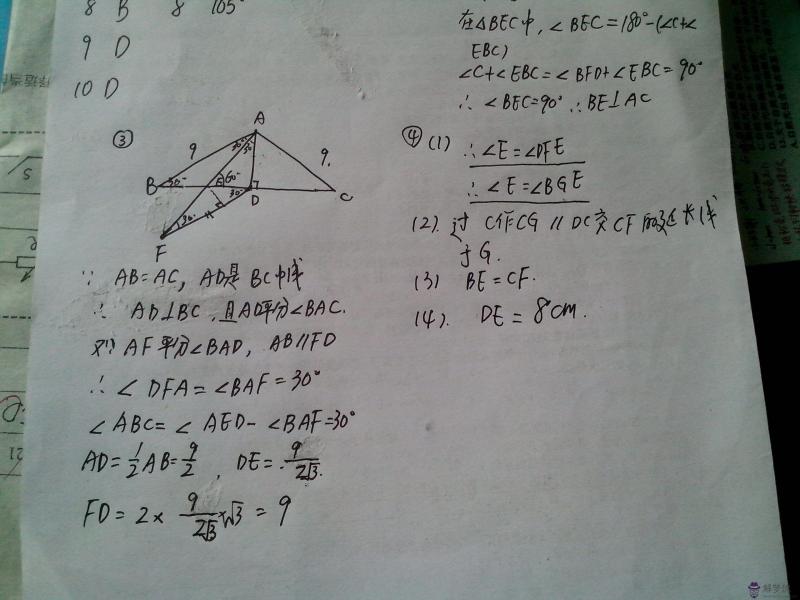 8 B 8 105°
9 D
10 D
在△BEC中,∠BEC=180°-(∠C+∠
EBC)
∠C+∠EBC=∠BFD+∠EBC=90°
∴ ∠BEC=90° ∴BE⊥AC
③
A
9
9.
30°
30°
B
30°
E
60°
30°
D
C
30°
F
∵ AB=AC, AD是BC中线
∴ AD⊥BC,且AD平分∠BAC.
AF平分∠BAD, AB∥FD
∴∠DFA=∠BAF=30°
∠ABC=∠AED-∠BAF=30°
AD=1/2AB=9/2, DE=9/2√3.
FD=2×9/2√3×√3=9
④(1) ∴∠E=∠DFE
∴∠E=∠BGE
(2).过C作CG∥DC交CF的延长线
于G.
(3) BE=CF.
(4). DE=8cm.